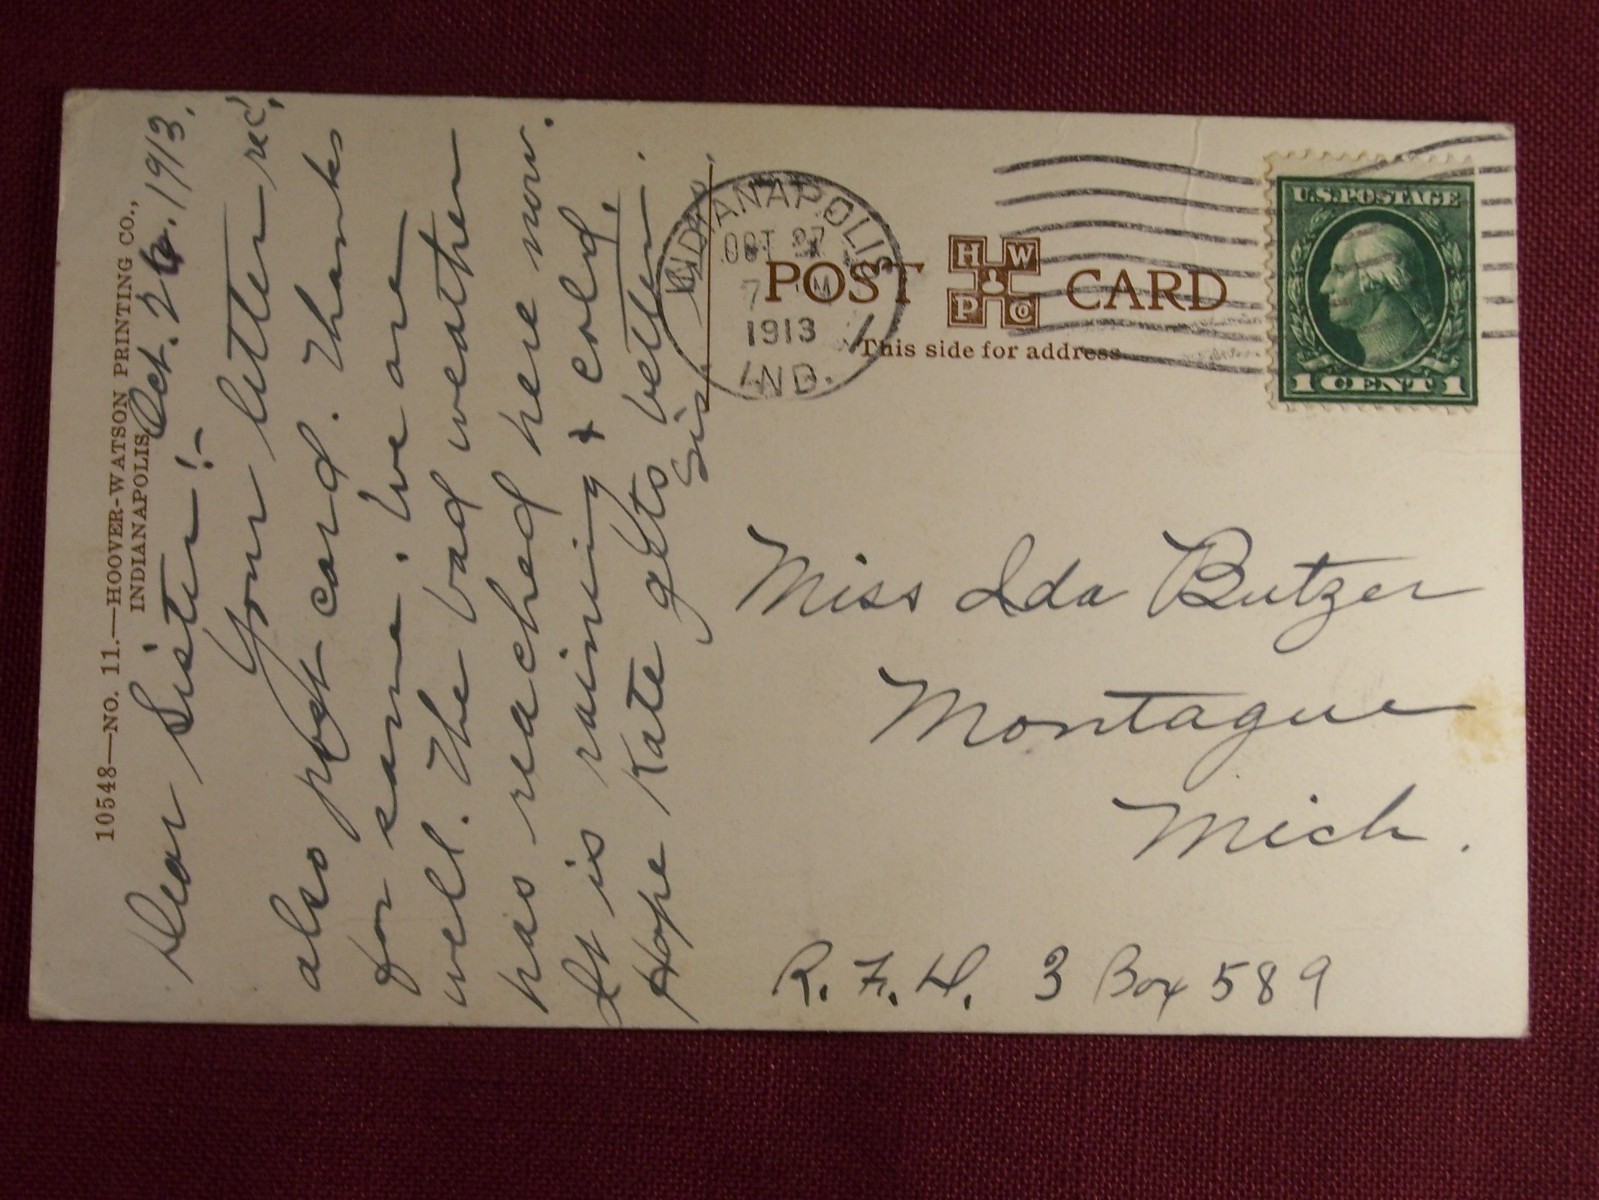 10548—NO. 11.—HOOVER-WATSON PRINTING CO.,
INDIANAPOLIS
Oct. 26. 1913.
Dear Sister!-
Your letter rec'.
also post card. Thanks
for same. We are
well. The bad weather
has reached here now.
It is raining & cold.
Hope Kate gets better.
Sis
INDIANAPOLIS
OCT 27
7 M
1913
IND.
POST CARD
H W P Co
This side for address
U.S. POSTAGE
1 CENT 1
Miss Ida Butzer
Montague
Mich.
R. F. D. 3 Box 589